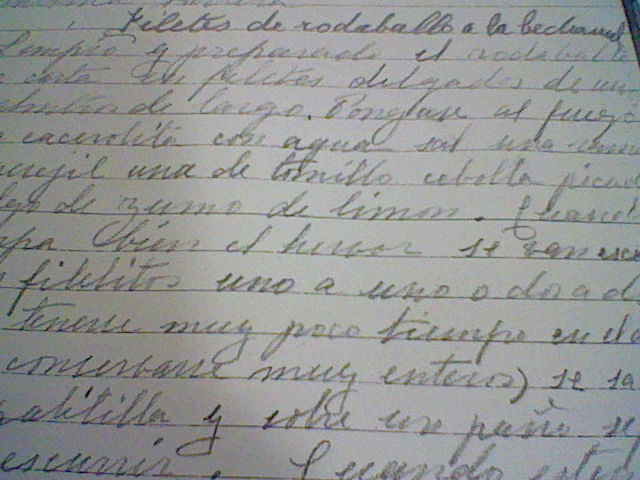 Filetes de rodaballo a la bechamel
Limpio y preparado el rodaballo
corta en filetes delgados de un
de largo. Pongase al fuego
cacerolita con agua sal una rama
perejil una de tomillo cebolla picad
de zumo de limon. Cuand
bien el hervor se van
filetitos uno a uno o dos a d
tenerse muy poco tiempo en el
conserbarse muy enteros) se sa
y sobre un paño se
escurrir. Cuando esten